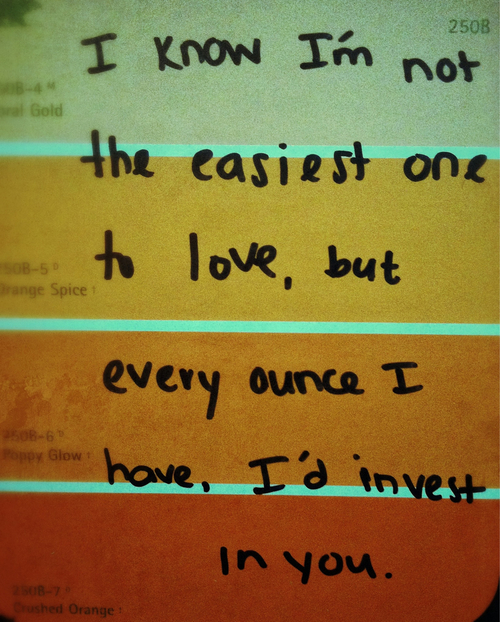 250B
I know I'm not
250B-4
oral Gold
the easiest one
to love, but
250B-5 D
Orange Spice
every ounce I
250B-6 D
Poppy Glow
have, I'd invest
in you.
250B-7 D
Crushed Orange